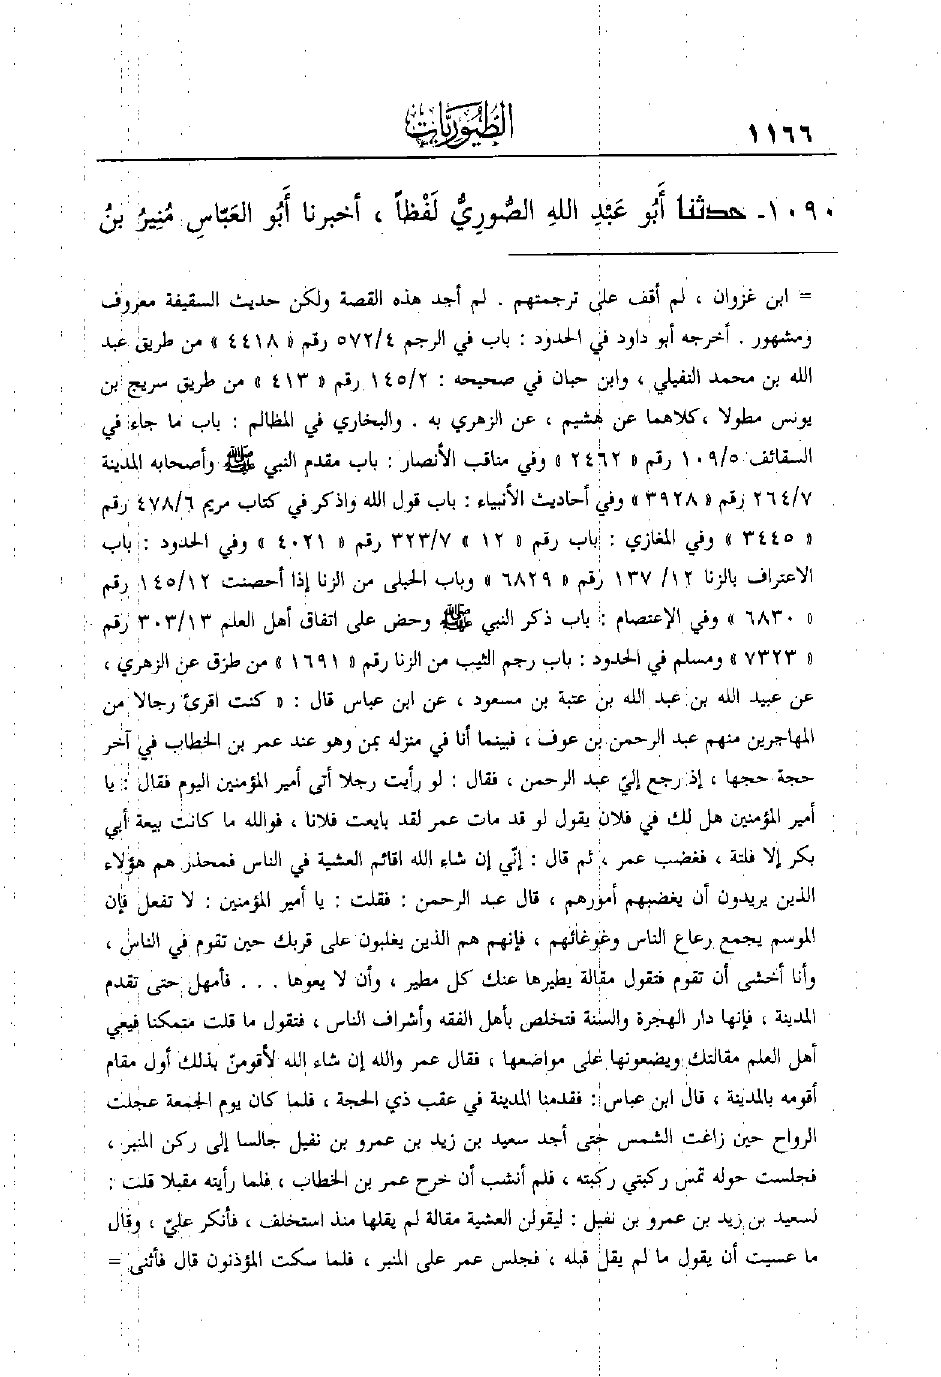 ١١٦٦
الطيوريات
١٠٩٠- حدثنا أَبُو عَبْدِ اللهِ الصُّورِيُّ لَفْظاً ، أخبرنا أَبُو العَبّاسِ مُنِيرُ بنُ
= ابن غزوان ، لم أقف على ترجمتهم . لم أجد هذه القصة ولكن حديث السقيفة معروف
ومشهور . أخرجه أبو داود في الحدود : باب في الرجم ٥٧٢/٤ رقم « ٤٤١٨ » من طريق عبد
الله بن محمد النفيلي ، وابن حبان في صحيحه : ١٤٥/٢ رقم « ٤١٣ » من طريق سريج بن
يونس مطولا ، كلاهما عن هشيم ، عن الزهري به . والبخاري في المظالم : باب ما جاء في
السقائف ١٠٩/٥ رقم « ٢٤٦٢ » وفي مناقب الأنصار : باب مقدم النبي ﷺ وأصحابه المدينة
٢٦٤/٧ رقم « ٣٩٢٨ » وفي أحاديث الأنبياء : باب قول الله واذكر في كتاب مريم ٤٧٨/٦ رقم
« ٣٤٤٥ » وفي المغازي : باب رقم « ١٢ » ٣٢٣/٧ رقم « ٤٠٢١ » وفي الحدود : باب
الاعتراف بالزنا ١٢/ ١٣٧ رقم « ٦٨٢٩ » وباب الحبلى من الزنا إذا أحصنت ١٤٥/١٢ رقم
« ٦٨٣٠ » وفي الإعتصام : باب ذكر النبي ﷺ وحض على اتفاق أهل العلم ٣٠٣/١٣ رقم
« ٧٣٢٣ » ومسلم في الحدود : باب رجم الثيب من الزنا رقم « ١٦٩١ » من طرق عن الزهري ،
عن عبيد الله بن عبد الله بن عتبة بن مسعود ، عن ابن عباس قال : « كنت اقرئ رجالا من
المهاجرين منهم عبد الرحمن بن عوف ، فبينما أنا في منزله بمن وهو عند عمر بن الخطاب في آخر
حجة حجها ، إذ رجع إليّ عبد الرحمن ، فقال : لو رأيت رجلا أتى أمير المؤمنين اليوم فقال : يا
أمير المؤمنين هل لك في فلان يقول لو قد مات عمر لقد بايعت فلانا ، فوالله ما كانت بيعة أبي
بكر إلا فلتة ، فغضب عمر ، ثم قال : إنّي إن شاء الله اقائم العشية في الناس فمحذر هم هؤلاء
الذين يريدون أن يغضبهم أمورهم ، قال عبد الرحمن : فقلت : يا أمير المؤمنين : لا تفعل فإن
الموسم يجمع رعاع الناس وغوغائهم ، فإنهم هم الذين يغلبون على قربك حين تقوم في الناس ،
وأنا أخشى أن تقوم فتقول مقالة يطيرها عنك كل مطير ، وأن لا يعوها . . . فأمهل حتى تقدم
المدينة ، فإنها دار الهجرة والسنة فتخلص بأهل الفقه وأشراف الناس ، فتقول ما قلت متمكنا فيعي
أهل العلم مقالتك ويضعونها على مواضعها ، فقال عمر والله إن شاء الله لأقومنّ بذلك أول مقام
أقومه بالمدينة ، قال ابن عباس : فقدمنا المدينة في عقب ذي الحجة ، فلما كان يوم الجمعة عجلت
الرواح حين زاغت الشمس حتى أجد سعيد بن زيد بن عمرو بن نفيل جالسا إلى ركن المنبر ،
فجلست حوله تمس ركبتي ركبته ، فلم أنشب أن خرج عمر بن الخطاب ، فلما رأيته مقبلا قلت :
لسعيد بن زيد بن عمرو بن نفيل : ليقولن العشية مقالة لم يقلها منذ استخلف ، فأنكر عليّ ، وقال
ما عسيت أن يقول ما لم يقل قبله ، فجلس عمر على المنبر ، فلما سكت المؤذنون قال فأثنى =